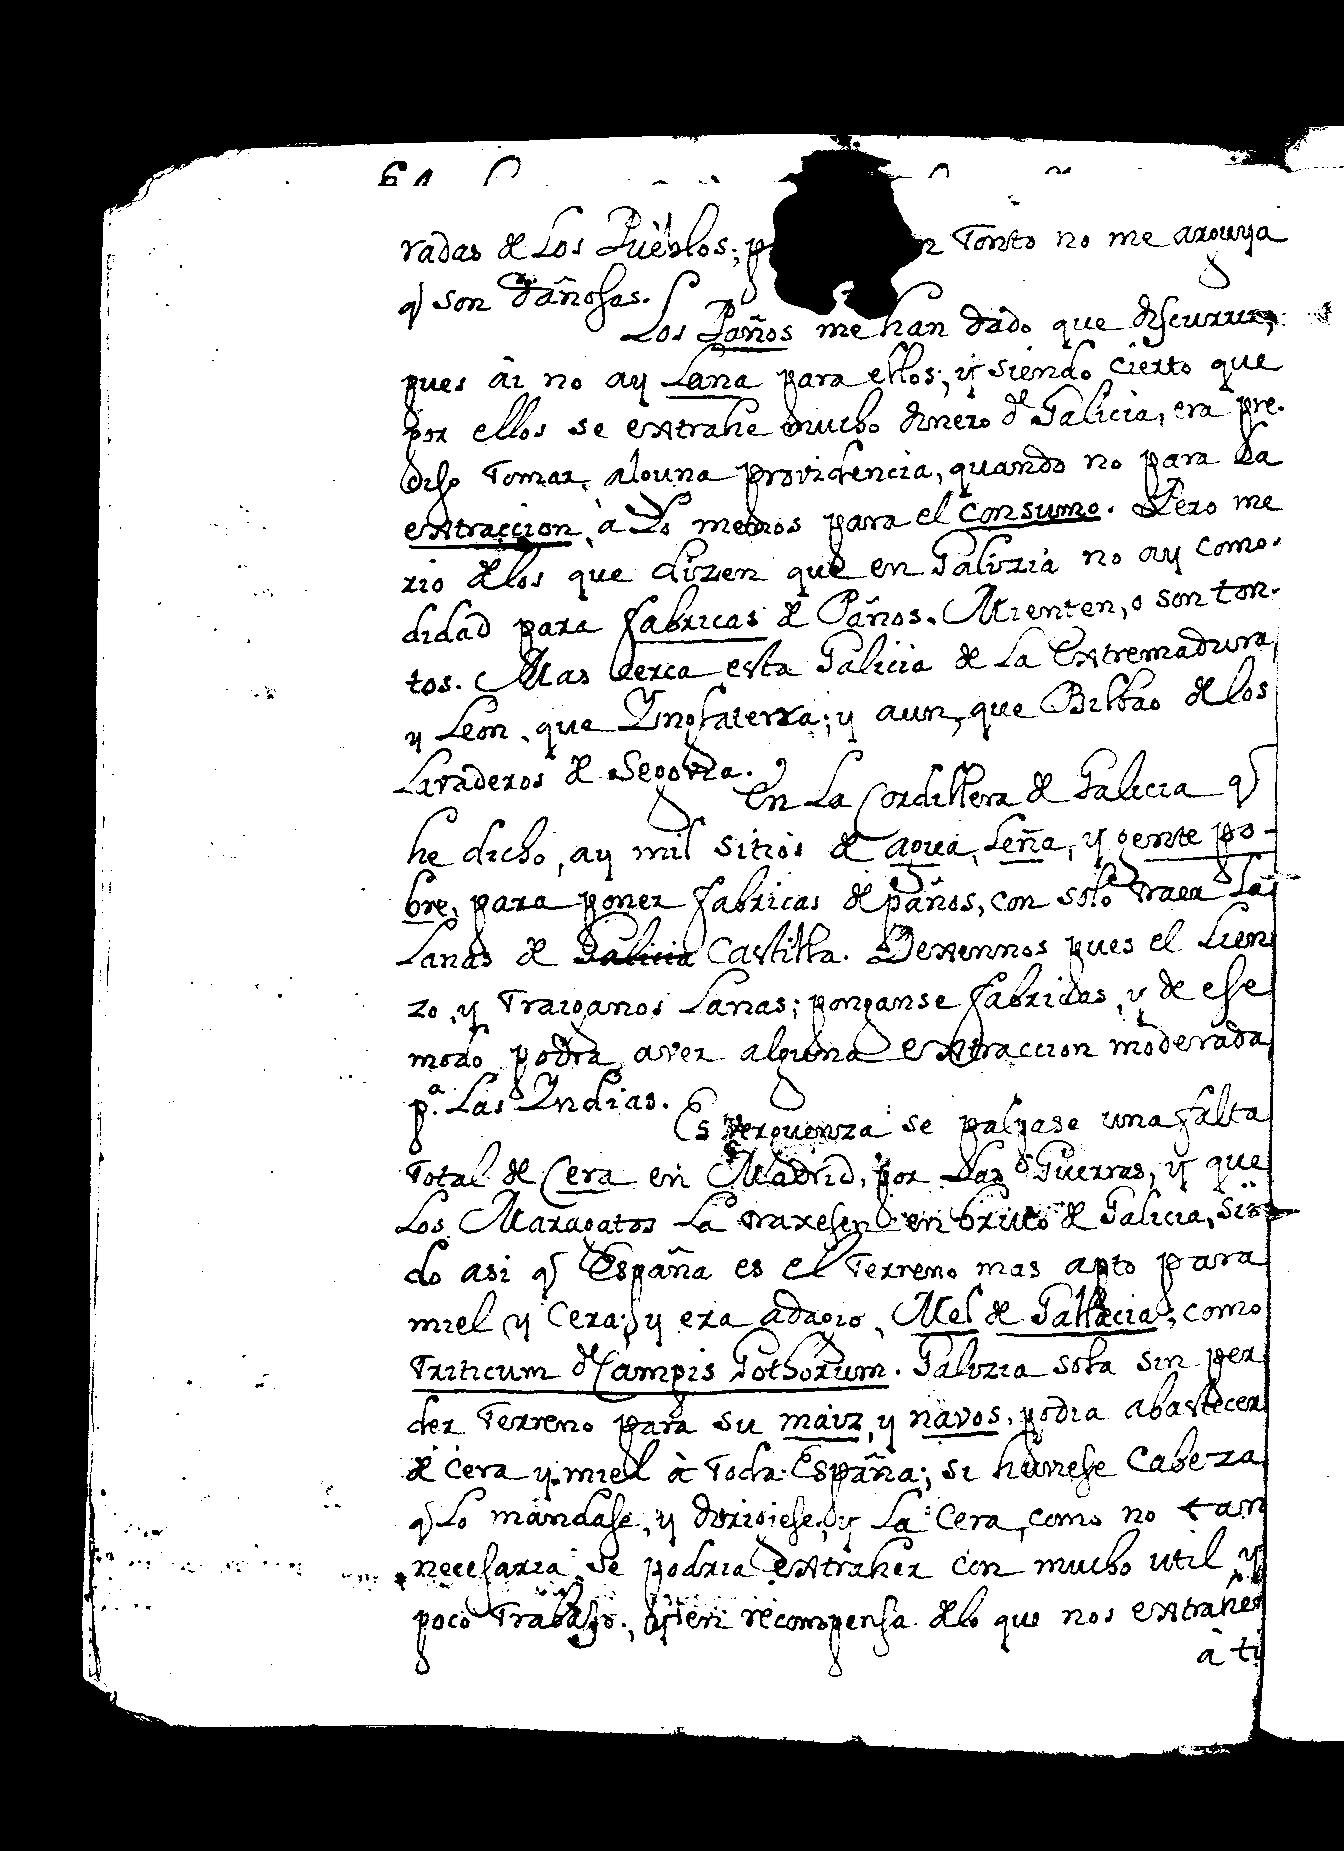 radas de Los Pueblos; p n Tonto no me arguya
q son dañosas.
Los Paños me han dado que discurrir,
pues ài no ay Lana para ellos; y siendo cierto que
por ellos se extrahe mucho dinero de Galicia, era pre-
ciso Tomar alguna providencia, quando no para La
extraccion, à Lo menos para el consumo. Pero me
rio de los que dizen que en Galizia no ay como-
didad para fabricas de Paños. Mienten, o son ton-
tos. Mas cerca esta Galicia de La Extremadura,
y Leon, que Ynglaterra; y aun, que Bilbao de los
Lavaderos de Segovia.
En La Cordillera de Galicia q
he dicho, ay mil sitios de agua, Leña, y gente po-
bre, para poner fabricas de paños, con solo traer La
Lanas de Galicia Castilla. Dexennos pues el Lien
zo, y Traiganos Lanas; ponganse fabricas, y de ese
modo podra aver alguna extraccion moderada
pª. Las Yndias.
Es verguenza se palpase una falta
Total de Cera en Madrid, por Las Guerras, y que
Los Maragatos La traxesen en bruto de Galicia, sien
do asi q España es el Terreno mas apto para
miel y Cera; y era adagio, Mel de Gallæcia; como
Triticum de Campis Gothorum. Galizia sola sin per
der Terreno para su maiz, y navos, podia abastecer
de Cera y miel à Toda España; si huviese Cabeza
q Lo mandase, y dirigiese; y La Cera, como no tan
necesaria se podria extraher con mucho util y
poco Trabajo, y en recompensa de lo que nos extrahen
à ti